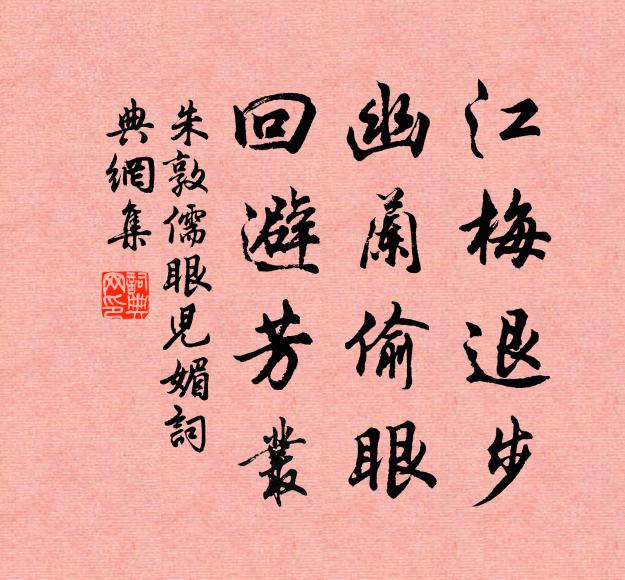 江梅退步
幽蘭偷眼
回避芳叢
朱敦儒眼兒媚詞
典網集
詞典网印